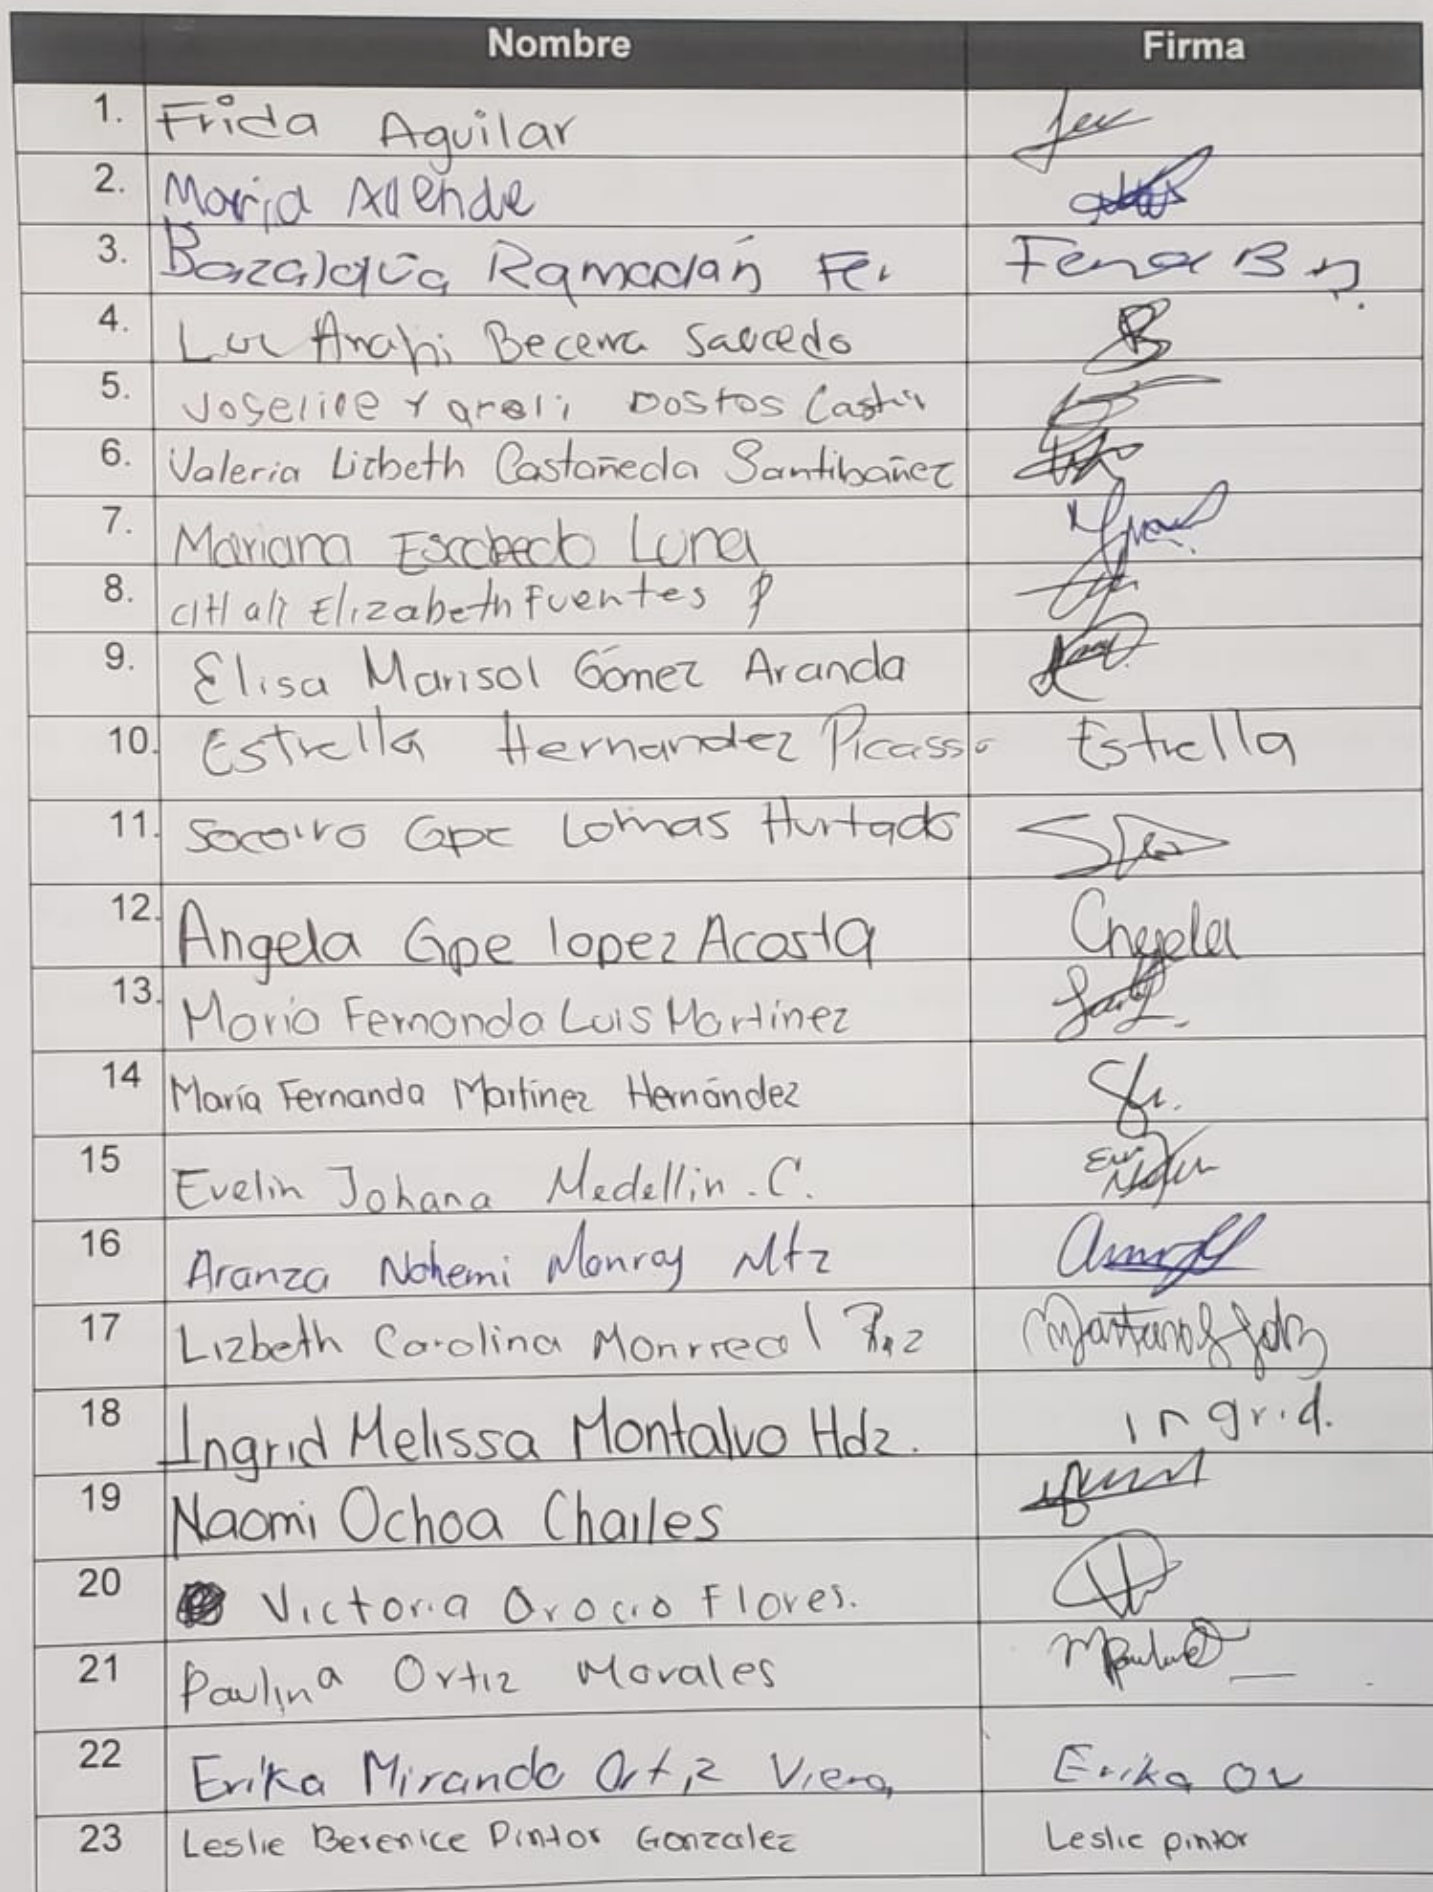 Nombre Firma
1. Frida Aguilar
2. Maria Allende
3. Bazaldúa Ramadán Fer.
4. Luz Anahi Becerra Saucedo
5. Yareli Castro
6. Valeria Lizbeth Castañeda Santibañez
7. Mariana Escobedo Luna
8. Citlali Elizabeth Fuentes P
9. Elisa Marisol Gómez Aranda
10. Estrella Hernandez Picasso Estrella
11. Socorro Gpe Lomas Hurtado
12. Angela Gpe lopez Acosta
13. Maria Fernanda Luis Martinez
14 María Fernanda Martínez Hernández
15 Evelin Johana Medellin. C.
16 Aranza Nohemi Monroy Mtz
17 Lizbeth Carolina Monrreal
18 Ingrid Melissa Montalvo Hdz. Ingrid.
19 Naomi Ochoa Chailes
20 Victoria Orocio Flores.
21 Paulina Ortiz Morales
22 Erika Miranda Ortiz Viera Erika OV
23 Leslie Berenice Pintor Gonzalez Leslie pintor